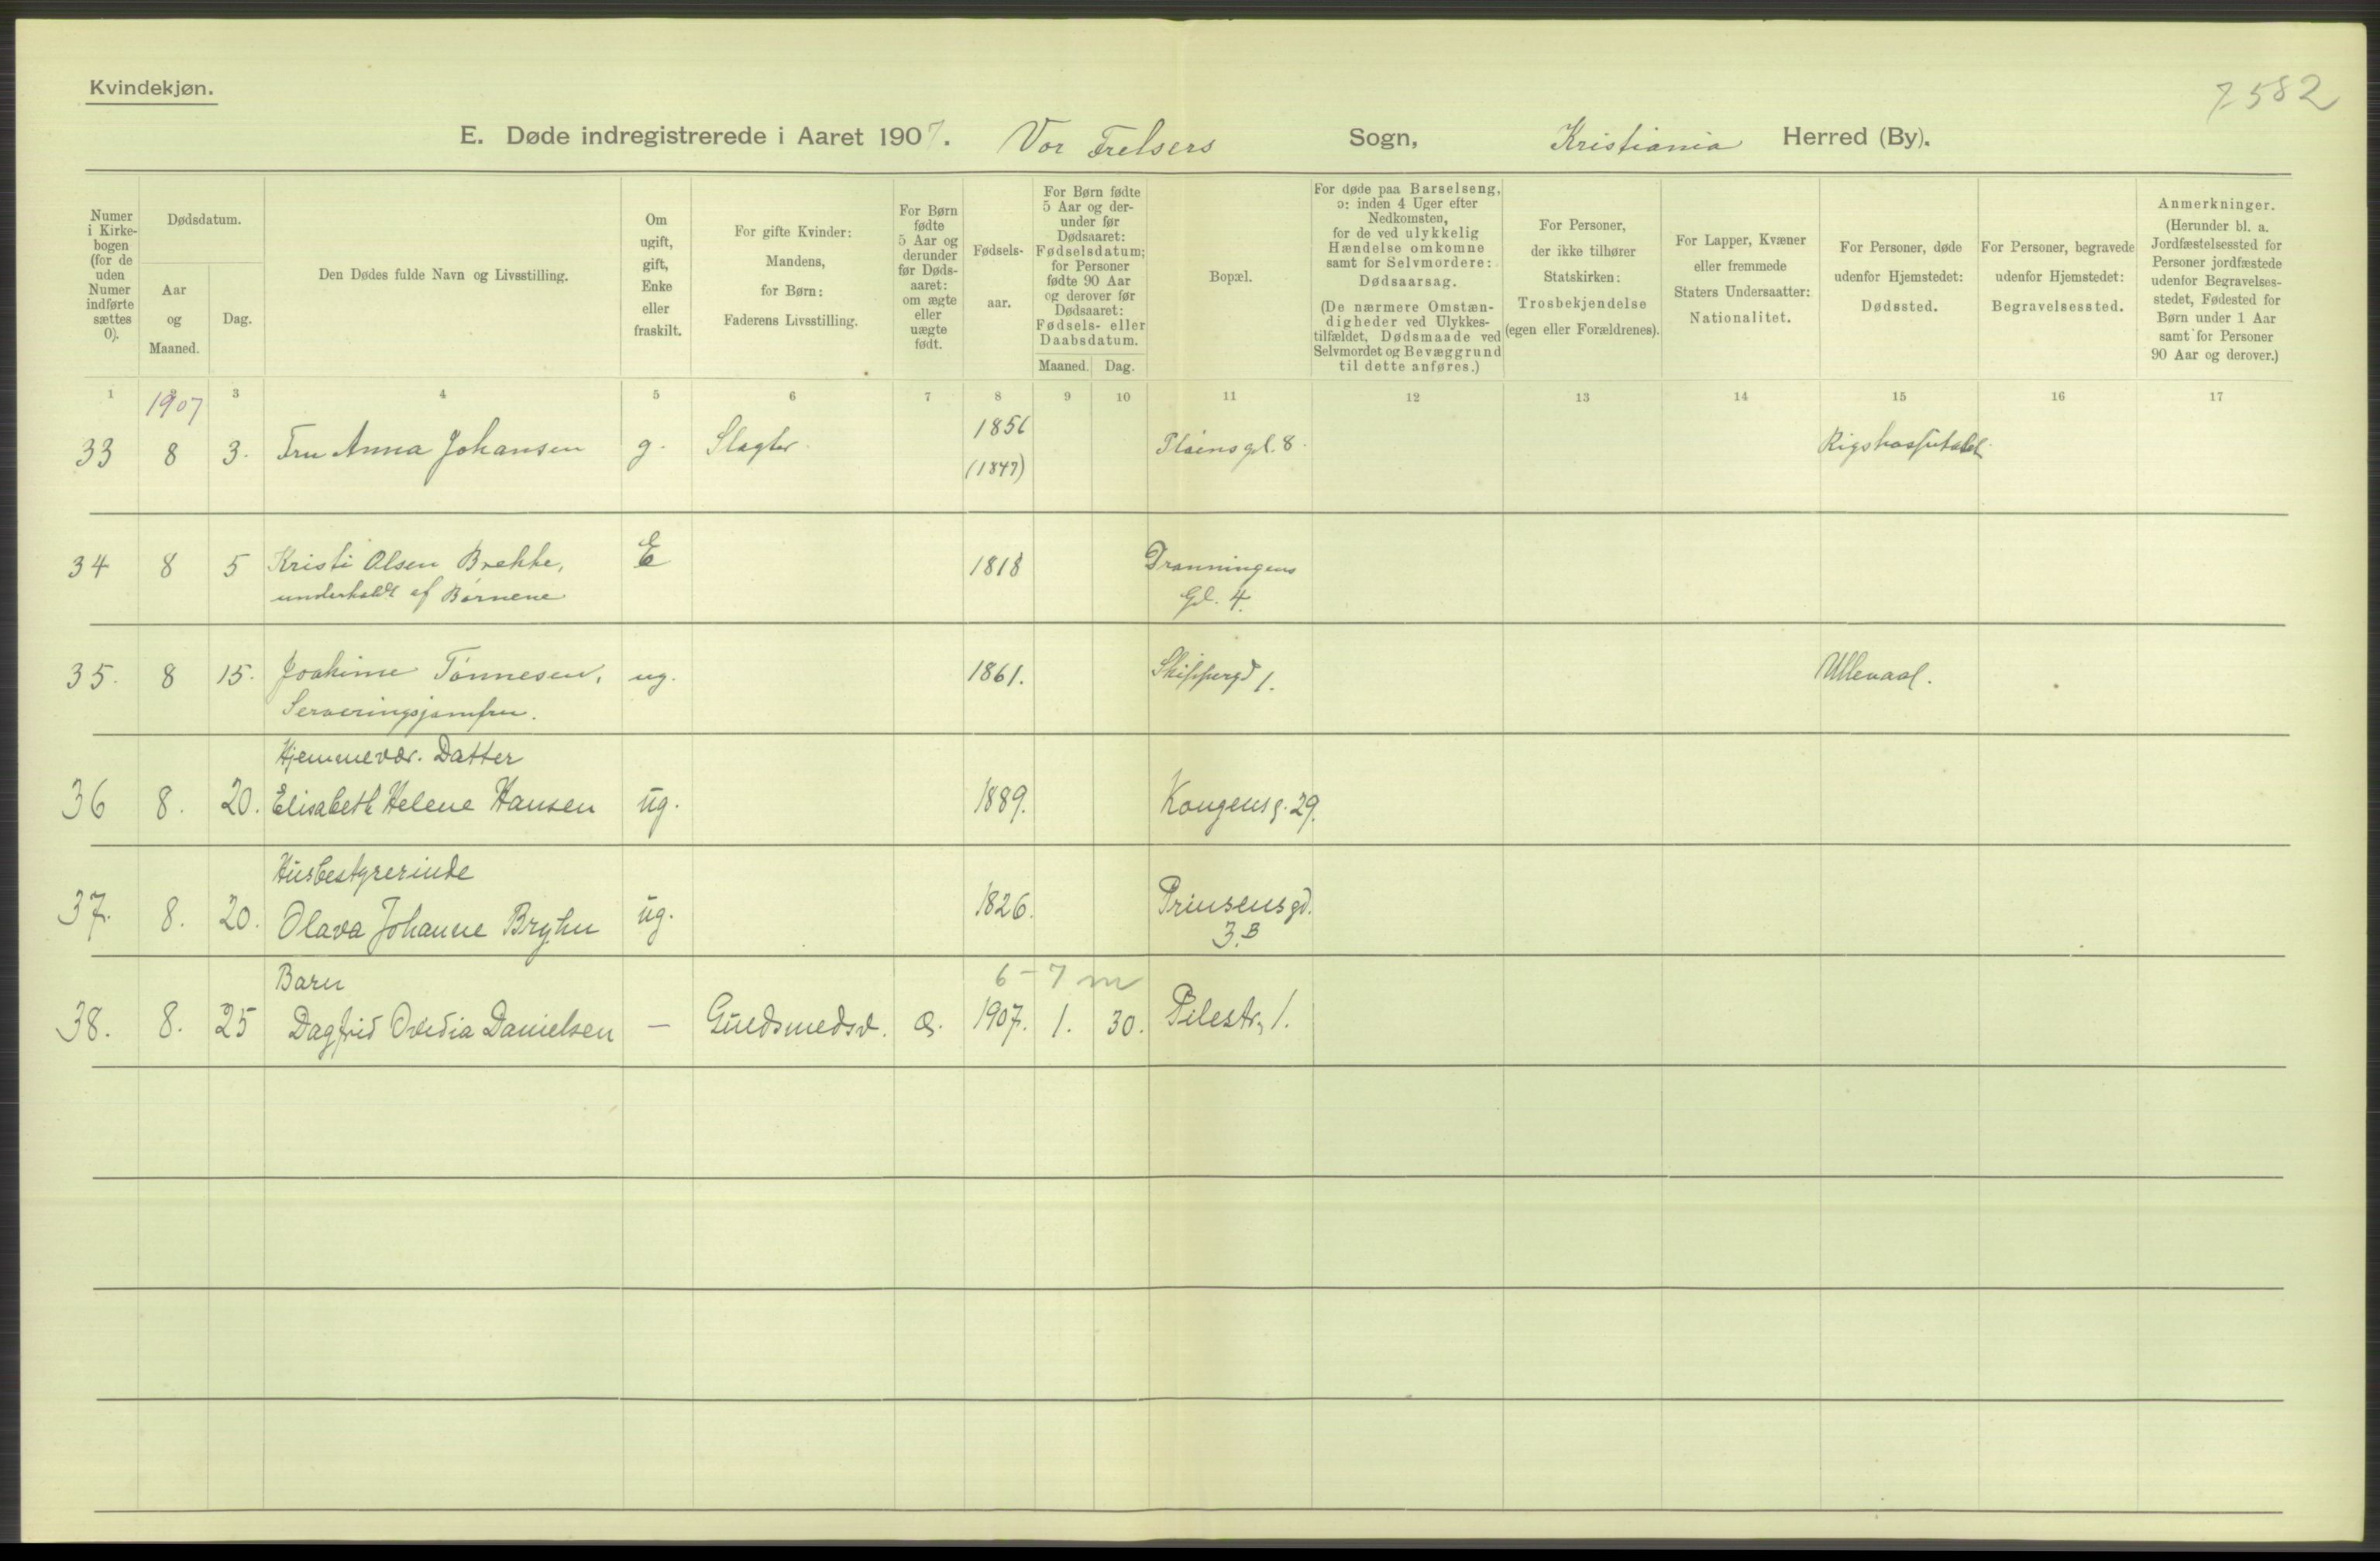 Kvindekjøn.
7582
E. Døde indregistrerede i Aaret 1907. Vor Frelsers Sogn, Kristiania Herred (By).
Numer i Kirkebogen (for de uden Numer indførte sættes 0).
Dødsdatum.
Aar og Maaned.
Dag.
Den Dødes fulde Navn og Livsstilling.
Om ugift, gift, Enke eller fraskilt.
For gifte Kvinder: Mandens, for Børn: Faderens Livsstilling.
For Børn fødte 5 Aar og derunder før Dødsaaret: om ægte eller uægte født.
Fødselsaar.
For Børn fødte 5 Aar og derunder før Dødsaaret: Fødselsdatum; for Personer fødte 90 Aar og derover før Dødsaaret: Fødsels- eller Daabsdatum.
Maaned. Dag.
Bopæl.
For døde paa Barselseng, ɔ: inden 4 Uger efter Nedkomsten, for de ved ulykkelig Hændelse omkomne samt for Selvmordere: Dødsaarsag.
(De nærmere Omstændigheder ved Ulykkestilfældet, Dødsmaade ved Selvmordet og Bevæggrund til dette anføres.)
For Personer, der ikke tilhører Statskirken: Trosbekjendelse (egen eller Forældrenes).
For Lapper, Kvæner eller fremmede Staters Undersaatter: Nationalitet.
For Personer, døde udenfor Hjemstedet: Dødssted.
For Personer, begravede udenfor Hjemstedet: Begravelsessted.
Anmerkninger. (Herunder bl. a. Jordfæstelsessted for Personer jordfæstede udenfor Begravelsesstedet, Fødested for Børn under 1 Aar samt for Personer 90 Aar og derover.)
1 3 4 5 6 7 8 9 10 11 12 13 14 15 16 17
1907
33 8 3. Fru Anna Johansen g. Slagter 1856 (1847) Pløens gd. 8. Rigshospitalet
34 8 5 Kristi Olsen Brekke, E 1818 Dronningens
underholdt af Børnene Gd. 4.
35. 8 15. Joakime Tønnesen, ug. 1861. Skippergd 1. Ullevaal.
Serveringsjomfru.
Hjemmevær. Datter
36 8. 20. Elisabeth Helene Hansen ug. 1889. Kongens g. 29.
Husbestyrerinde
37. 8. 20. Olava Johanne Bryhn ug. 1826. Prinsens gd.
3.B
Barn 6-7 m
38. 8. 25 Dagfrid Ovidia Danielsen — Guldsmedsv. æ. 1907. 1. 30. Pilestr, 1.